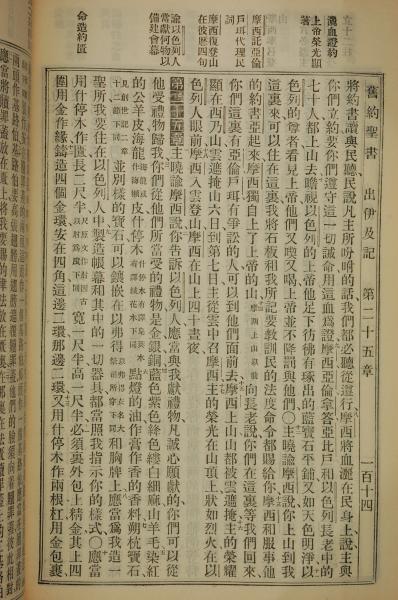 舊約聖書 出伊及記 第二十五章 一百十四
灑血證約
上帝榮光顯著
摩西託亞倫戶珥代理民詞
摩西復登山在彼歷四旬
諭以色列人當獻何物以備建會幕
命造約匱
將約書讀與民聽民說凡主所吩咐的話我們都必聽從遵行摩西將血灑在民身上說主與
你們立約要你們遵守這一切誡命用這血為證摩西亞倫拿答亞比戶和以色列長老中的
七十人都上山去瞻視以色列的上帝他足下彷彿有琢出的藍寶石不鋪又如天色明淨以
色列的尊者看見上帝他們又喫又喝上帝並不降罰與他們○主曉諭摩西說你上山到我
這裏來可以住在這裏我將石板和我所記要教訓民的法度命令都賜給你摩西和服事他
的約書亞起來摩西獨自上了上帝的山 向長老說你們在這裏等我們回來
你們這裏有亞倫戶珥有爭訟的人可以到他們面前去摩西上山山都被雲遮掩主的榮耀
顯在西乃山雲遮掩山六日到第七日主從雲中召摩西主的榮光在山頂上狀如烈火在以
色列人眼前摩西入雲登山摩西在山上四十晝夜
第二十五章 主曉諭摩西說你告訴以色列人應當為我獻禮物凡誠心願獻的你們可以從
他受禮物歸我你們從他們所當受的禮物是金銀銅藍色紫色絳色縷白細麻山羊毛染紅
的公羊皮海龍皮什停木點燈的油作膏作香的香料朔杭寶石
並別樣的寶石可以鑲嵌在以弗得和胸牌上應當為我造一
聖所我要住在以色列人中製造帳幕和其中的一切器具都當照我指示你的樣式○應當
用什停木作一匱長二尺半寬一尺半高一尺半必須裏外包上精金其上四
圍用金作緣鑄造四個金環安在四角這邊二環那邊二環又用什停木作兩根杠用金包裹